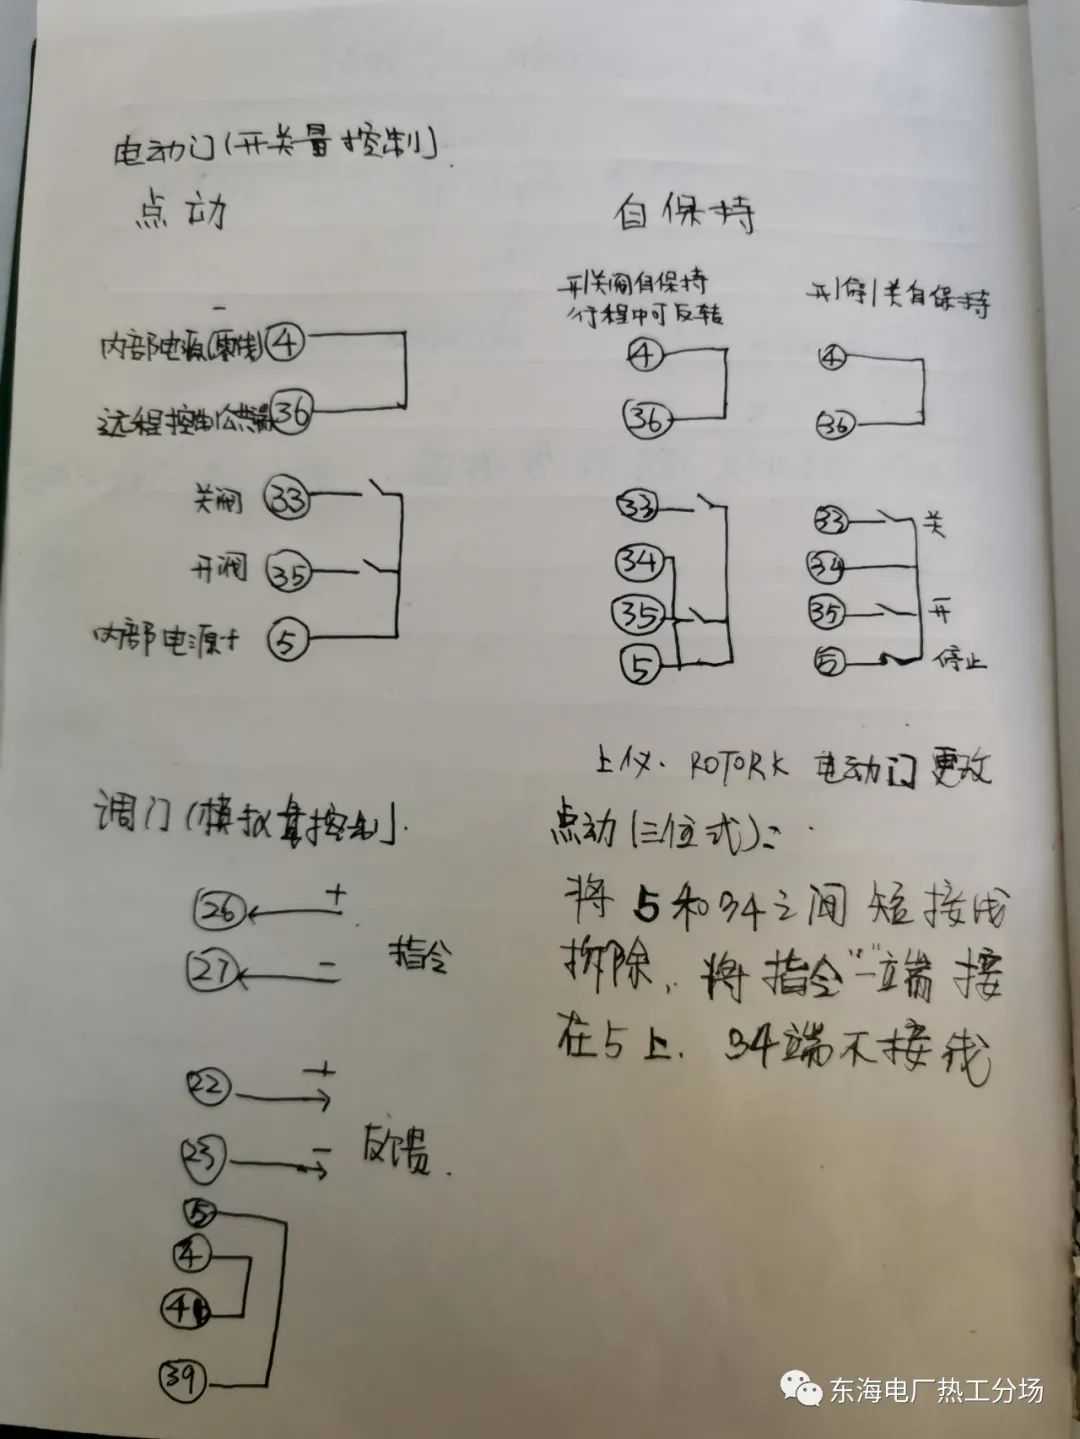 电动门(开关量控制)
点动
-
内部电源(零线) 4
远程控制公共端 36
关阀 33
开阀 35
内部电源+ 5
自保持
开/关阀自保持
行程中可反转
4
36
33
34
35
5
开/停/关自保持
4
36
33 关
34
35 开
5 停止
调门(模拟量控制)
26 +
27 -
指令
22 +
23 -
反馈.
5
4
40
39
上仪. ROTORK 电动门更改
点动(三位式):
将5和34之间短接线
拆除, 将指令"-"端接
在5上. 34端不接线
东海电厂热工分场